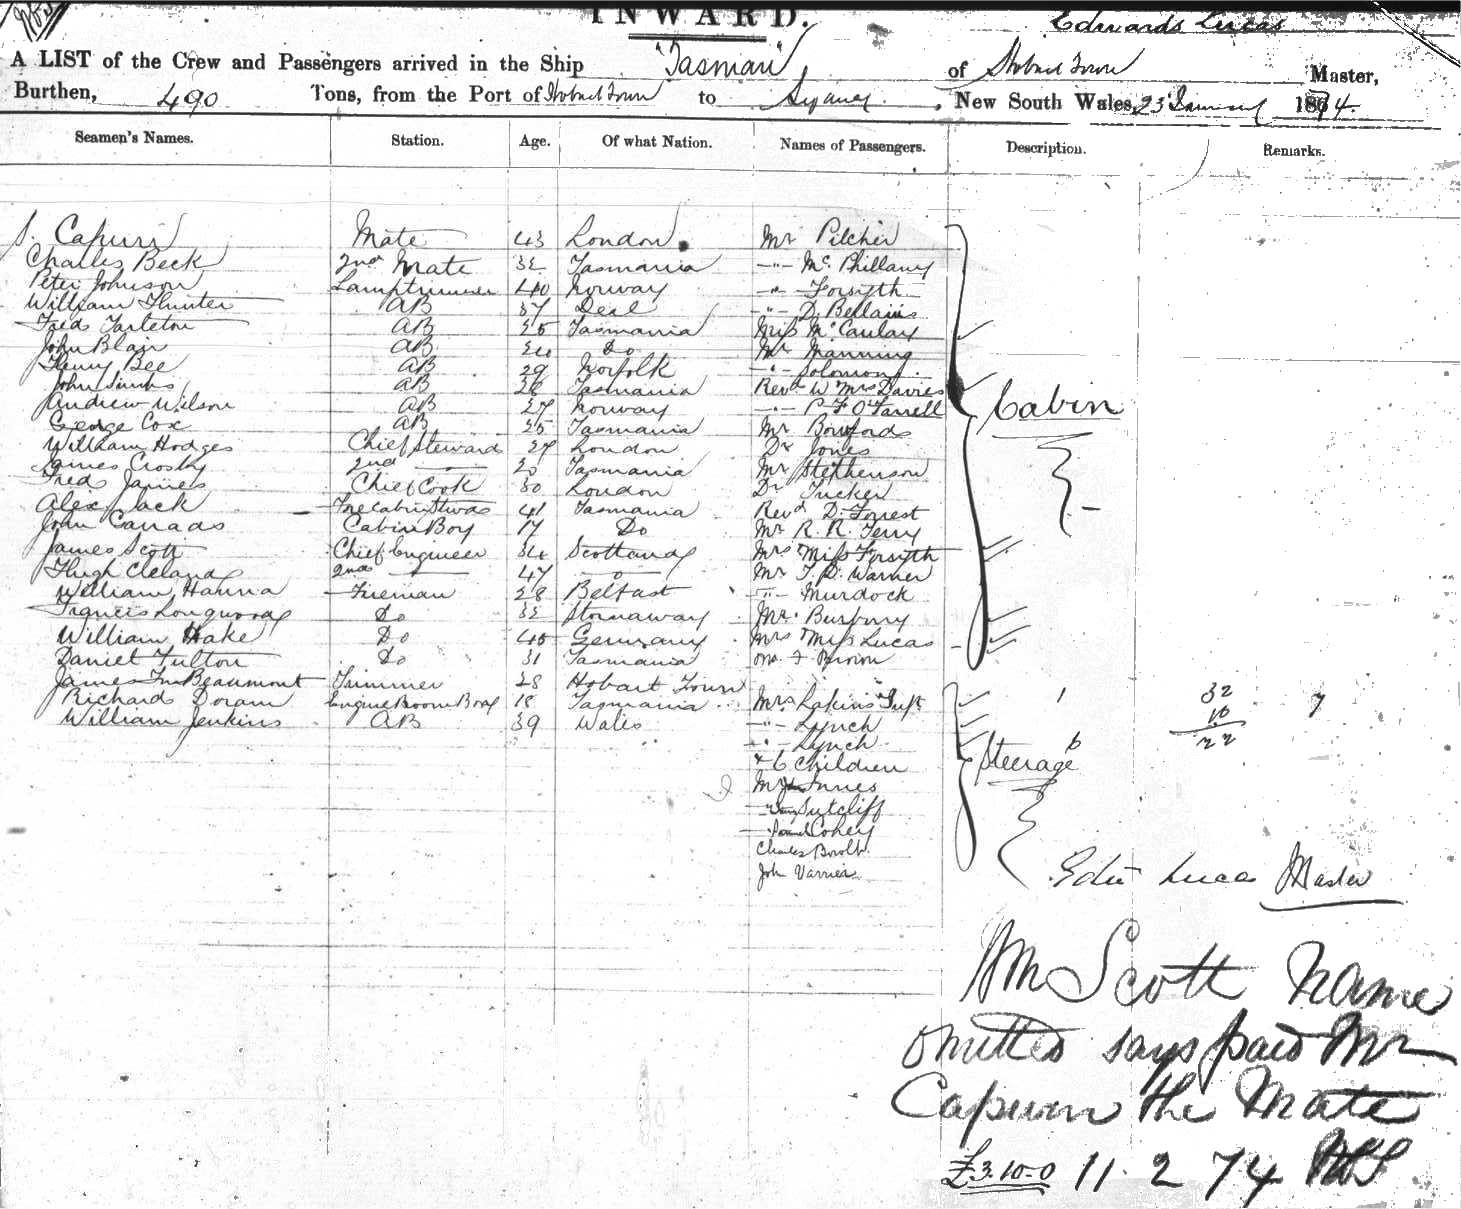 INWARD.
Edward Lucas
A LIST of the Crew and Passengers arrived in the Ship "Tasman" of Hobart Town Master,
Burthen, 490 Tons, from the Port of Hobart Town to Sydney, New South Wales, 23 January 1874.
Seamen's Names. Station. Age. Of what Nation. Names of Passengers. Description. Remarks.
S. Capurn Mate 43 London Mr Pilcher
Charles Beck 2nd Mate 32 Tasmania -"- McPhillamy
Peter Johnson Lamptrimmer 40 Norway -"- Forsyth
William Hunter AB 37 Deal -"- D. Bellairs
Fred Tarleton AB 25 Tasmania Miss McCaulay
John Blair AB 24 Do Mr Manning
Henry Bee AB 29 Norfolk -"- Solomons
John Simms AB 26 Tasmania Revd W Mrs Davies
Andrew Wilson AB 27 Norway -"- P F O'Farrell
Cabin
George Cox AB 25 Tasmania Mr Bowfords
William Hodges Chief Steward 27 London Dr Jones
James Crosby 2nd 20 Tasmania Mr Stephenson
Fred James Chief Cook 30 London Dr Tucker
Alex Jack Forecabin Stwd 41 Tasmania Revd D. Forrest
John Canads Cabin Boy 17 Do Mr R. R. Terry
James Scott Chief Engineer 34 Scotland Mrs Miss Forsyth
Hugh Cleland 2nd 47 Mr T. D. Warner
William Hanna Fireman 28 Belfast -"- Murdock
Francis Do 32 Stornaway Mr. Busbury
William Hake Do 45 Germany Mrs Miss Lucas
Daniel Fulton Do 31 Tasmania F. Brown
James Beaumont Trimmer 28 Hobart Town
Richard Doram Engine Room Boy 18 Tasmania Mrs Lakins
1 32 7
William Jenkins AB 39 Wales -"- Lynch
10
-"- Lynch
6 22
& 6 Children
Steerage
Mr Innes
Sutcliff
Cohey
Charles
John Varnier
Edw Lucas Master
Wm Scott name
omitted says paid Mr
Capurn the Mate
£3.10-0 11. 2 74